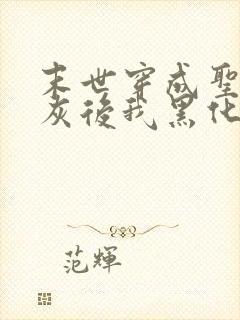 末世穿成聖
灰後我黑化
范輝